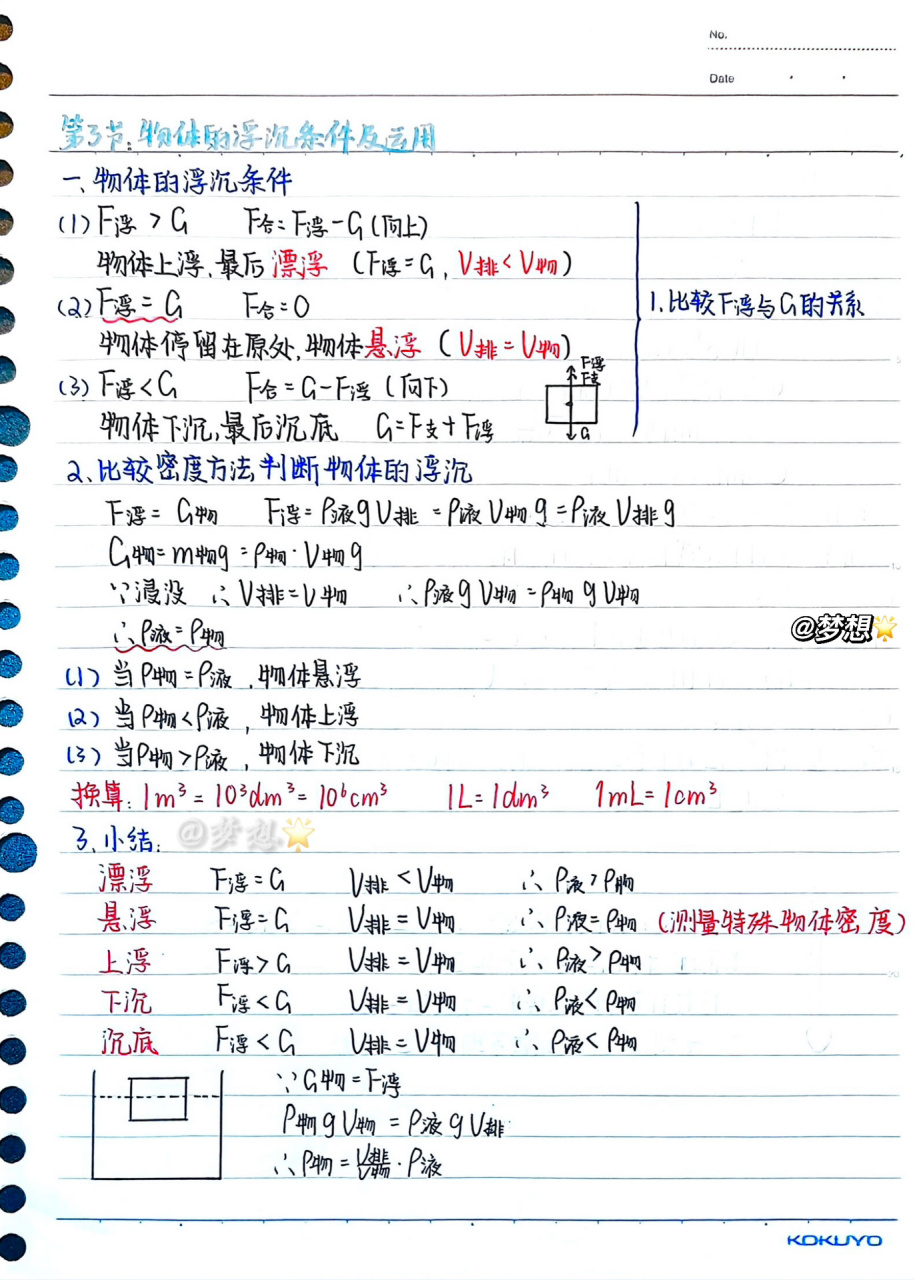 No.
Date
第3节:物体的浮沉条件及运用
一、物体的浮沉条件
(1) F浮 > G F合=F浮-G (向上)
物体上浮,最后漂浮 (F浮=G, V排<V物)
(2) F浮=G F合=0
物体停留在原处,物体悬浮 (V排=V物)
(3) F浮<G F合=G-F浮 (向下)
物体下沉,最后沉底 G=F支+F浮
F浮
F支
G
1.比较F浮与G的关系
2、比较密度方法判断物体的浮沉
F浮= G物 F浮=ρ液gV排 =ρ液V物g =ρ液V排g
G物=m物g=ρ物·V物g
∵浸没 ∴V排=V物 ∴ρ液gV物=ρ物gV物
∴ρ液=ρ物
@梦想🌟
(1) 当ρ物=ρ液,物体悬浮
(2) 当ρ物<ρ液,物体上浮
(3) 当ρ物>ρ液,物体下沉
换算: 1m³=10³dm³=10⁶cm³ 1L=1dm³ 1mL=1cm³
3、小结: @梦想🌟
漂浮 F浮=G V排<V物 ∴ρ液>ρ物
悬浮 F浮=G V排=V物 ∴ρ液=ρ物 (测量特殊物体密度)
上浮 F浮>G V排=V物 ∴ρ液>ρ物
下沉 F浮<G V排=V物 ∴ρ液<ρ物
沉底 F浮<G V排=V物 ∴ρ液<ρ物
∵G物=F浮
ρ物gV物=ρ液gV排
∴ρ物=V排/V物·ρ液
KOKUYO